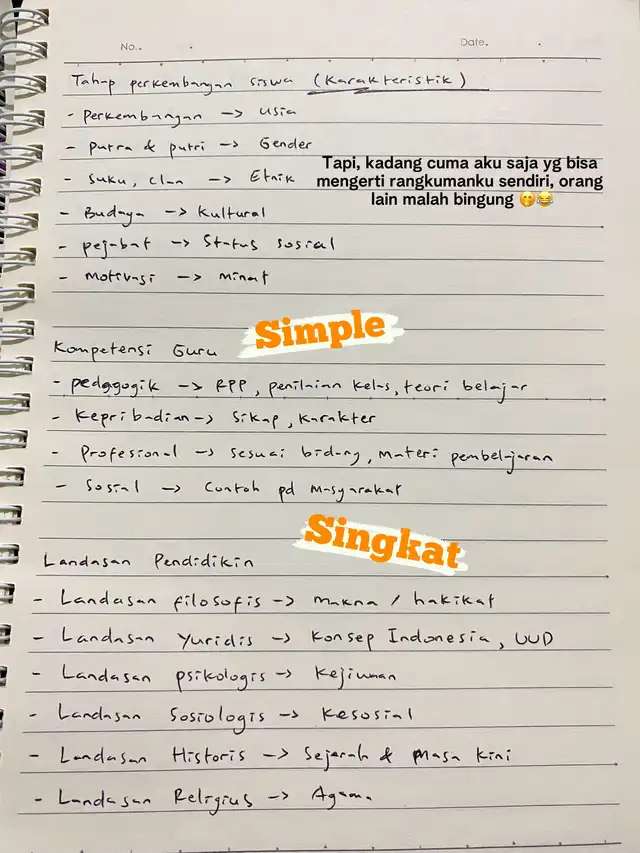 No..
Date.
Tahap perkembangan siswa (Karakteristik)
- Perkembangan -> Usia
- Putra & putri -> Gender
- Suku, Clan -> Etnik
- Budaya -> Kultural
- pejabat -> Status sosial
- Motivasi -> Minat
Tapi, kadang cuma aku saja yg bisa
mengerti rangkumanku sendiri, orang
lain malah bingung 🤭😂
Simple
Kompetensi Guru
- pedagogik -> RPP, penilaian kelas, teori belajar
- Kepribadian -> Sikap, Karakter
- Profesional -> sesuai bidang, materi pembelajaran
- Sosial -> Contoh pd Masyarakat
Singkat
Landasan Pendidikin
- Landasan filosofis -> makna / hakikat
- Landasan Yuridis -> Konsep Indonesia, UUD
- Landasan psikologis -> Kejiwaan
- Landasan Sosiologis -> Kesosial
- Landasan Historis -> Sejarah & Masa Kini
- Landasan Religius -> Agama